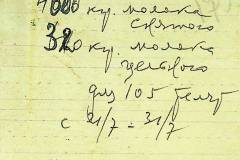 1000 кур. молока
снятого
320 кур. молока
цельного
для 105 телят
с 21/7 - 31/7